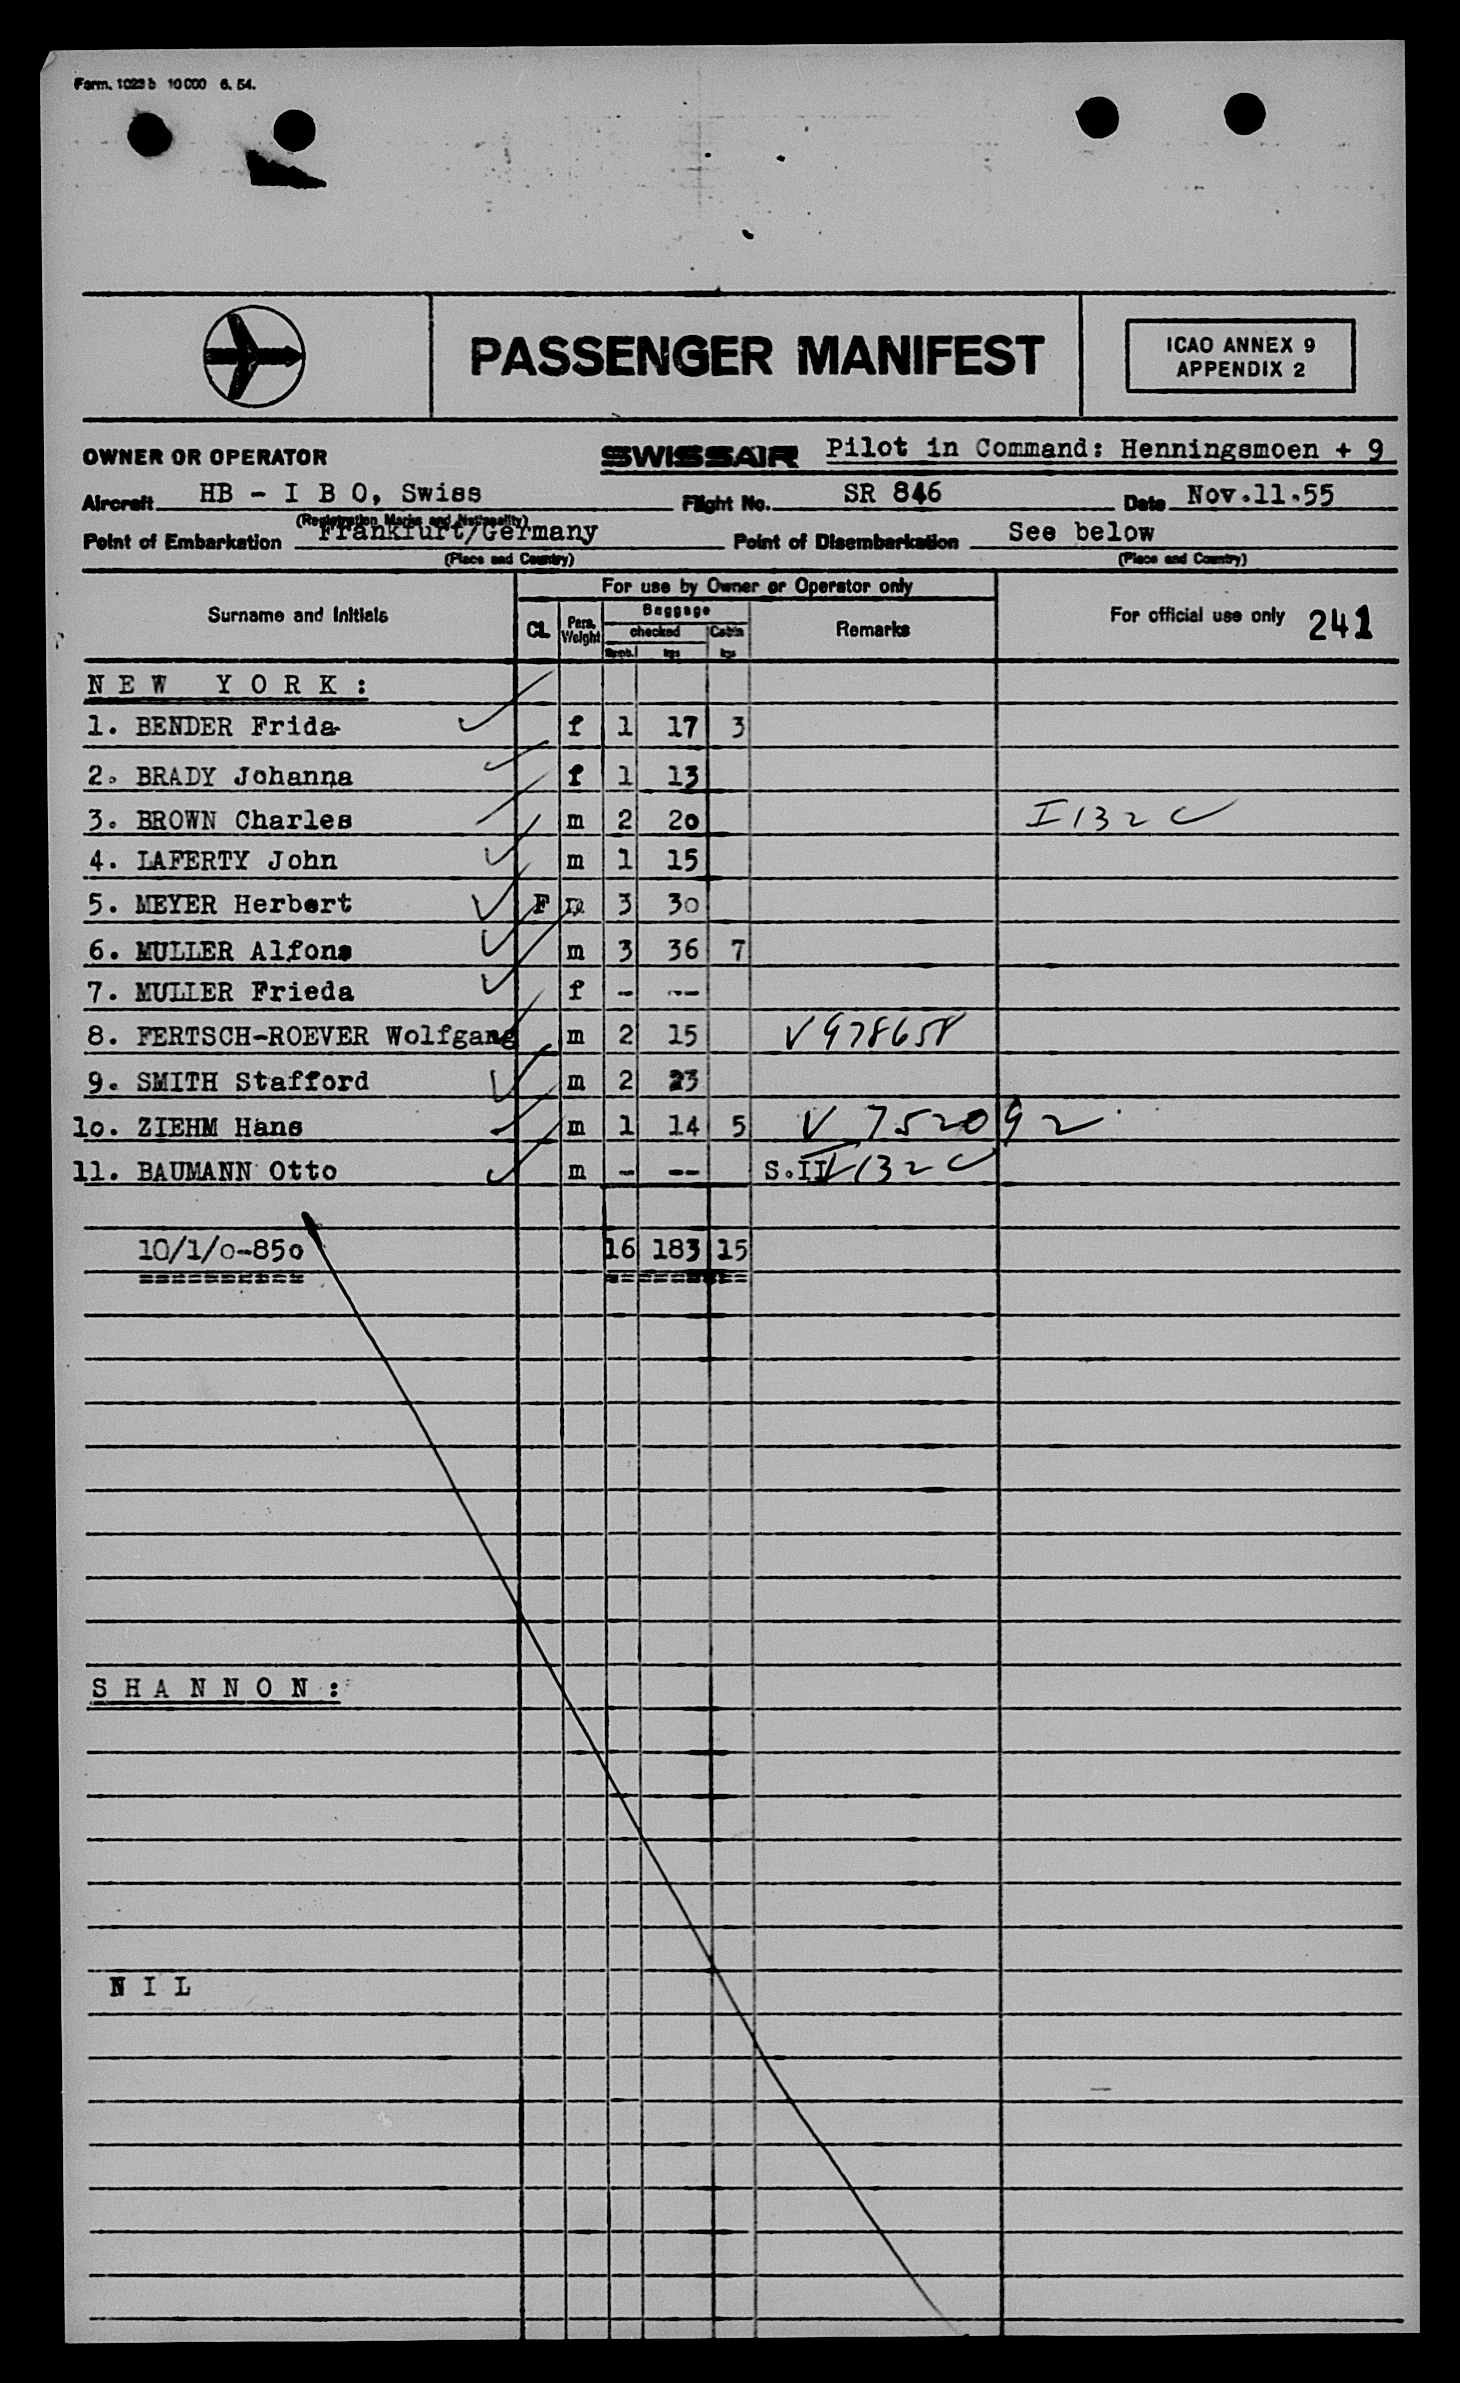 Form. 1023 b 10 000 6. 54.
PASSENGER MANIFEST
ICAO ANNEX 9
APPENDIX 2
OWNER OR OPERATOR SWISSAIR Pilot in Command: Henningsmoen + 9
Aircraft HB - I B O, Swiss Flight No. SR 846 Date Nov.11.55
(Registration Marks and Nationality)
Point of Embarkation Frankfurt/Germany Point of Disembarkation See below
(Place and Country) (Place and Country)
For use by Owner or Operator only
Surname and Initials CL Pers. Weight Baggage Remarks For official use only 241
checked Cabin
Numb. kgs kgs
N E W Y O R K :
1. BENDER Frida f 1 17 3
2. BRADY Johanna f 1 13
3. BROWN Charles m 2 20 I 132 C
4. LAFERTY John m 1 15
5. MEYER Herbert F m 3 30
6. MULLER Alfons m 3 36 7
7. MULLER Frieda f - --
8. FERTSCH-ROEVER Wolfgang m 2 15 V 978658
9. SMITH Stafford m 2 23
10. ZIEHM Hans m 1 14 5 V 752092
11. BAUMANN Otto m - -- S.II I 132 C
10/1/0-850 16 183 15
S H A N N O N :
N I L